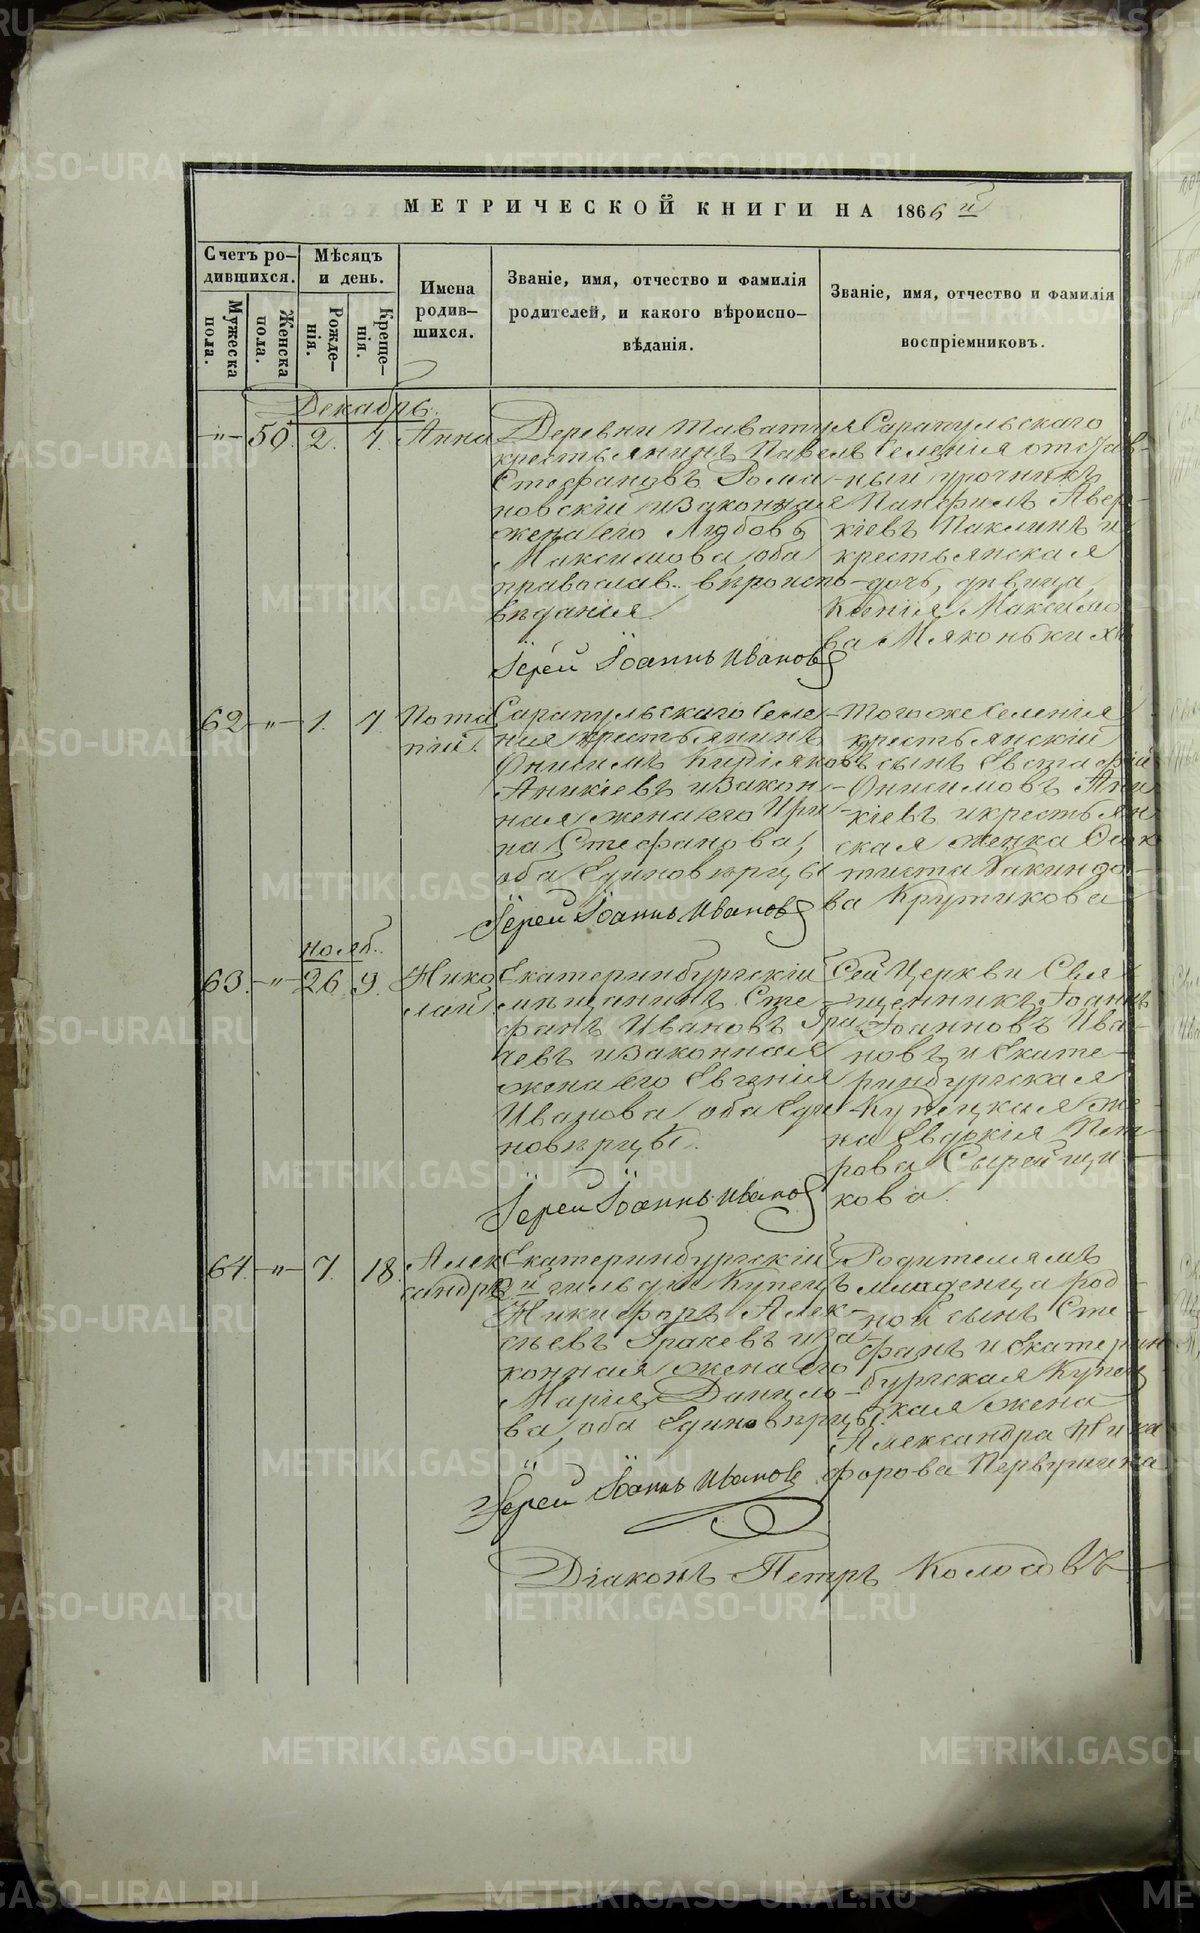 МЕТРИЧЕСКОЙ КНИГИ НА 1866 й
Счетъ ро-
дившихся.
Мѣсяцъ
и день.
Имена
родив-
шихся.
Званіе, имя, отчество и фамилія
родителей, и какого вѣроиспо-
вѣданія.
Званіе, имя, отчество и фамилія
воспріемниковъ.
Мужеска
пола.
Женска
пола.
Рожде-
нія.
Креще-
нія.
Декабрь.
-"- 50. 2. 7. Анна
Деревни Таватуя
крестьянинъ Павелъ
Стефановъ Рома-
новскій и законная
жена его Любовь
Максимова, оба
православ. вѣроиспо-
вѣданія.
Іерей Іоаннъ Ивановъ
Сарапульскаго
Селенія отстав-
ный
Панфилъ Авер-
кіевъ Паклинъ и
крестьянская
дочь, дѣвица,
Ксенія Максимо
ва Мяконькихъ
62 -"- 1. 7. Пота
пій.
Сарапульскаго Селе-
нія крестьянинъ
Онисимъ Кирьяковъ
Аникіевъ и закон-
ная жена его Ири-
на Стефанова,
оба Единовѣрцы
Іерей Іоаннъ Ивановъ
Того же Селенія
крестьянскій
сынъ Евстафій
Онисимовъ Ани
кіевъ и крестьян
ская женка
Іакинфо-
ва Крутикова
Нояб.
63. -"- 26 9. Нико
лай
Екатеринбургскій
мѣщанинъ Сте-
фанъ Ивановъ Гра
чевъ и законная
жена его Евгенія
Иванова, оба Еди
новѣрцы.
Іерей Іоаннъ Ивановъ
Сей Церкви Свя
щенникъ Іоаннъ
Іоанновъ Ива-
новъ и Екате-
ринбургская
Купецкая же-
на Евдокія Пет-
рова Сырейщи-
кова.
64. -"- 7. 18. Алек
сандръ
Екатеринбургскій
2й гильдіи Купецъ
Никифоръ Алек-
сѣевъ Грачевъ и за
конная жена его
Марія Данило-
ва, оба Единовѣрцы.
Іерей Іоаннъ Ивановъ
Родителямъ
младенца род-
ной сынъ Сте-
фанъ и Екатерин
бургская Купец
кая жена
Александра Ники
форова Первушина
Діаконъ Петръ Колосовъ
METRIKI.GASO-URAL.RU